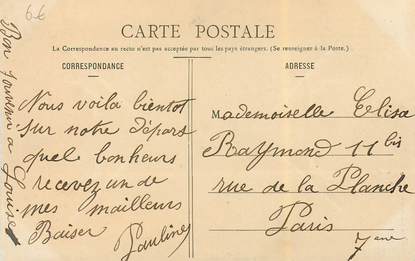 66
CARTE POSTALE
La Correspondance au recto n'est pas acceptée par tous les pays étrangers. (Se renseigner à la Poste)
CORRESPONDANCE
ADRESSE
Bon souvenir a Louise
Nous voila bientot
sur notre départ
quel bonheurs
recevez un de
mes mailleurs
Baiser
Pauline
Mademoiselle Elisa
Raymond 11 bis
rue de la Planche
Paris
7eme